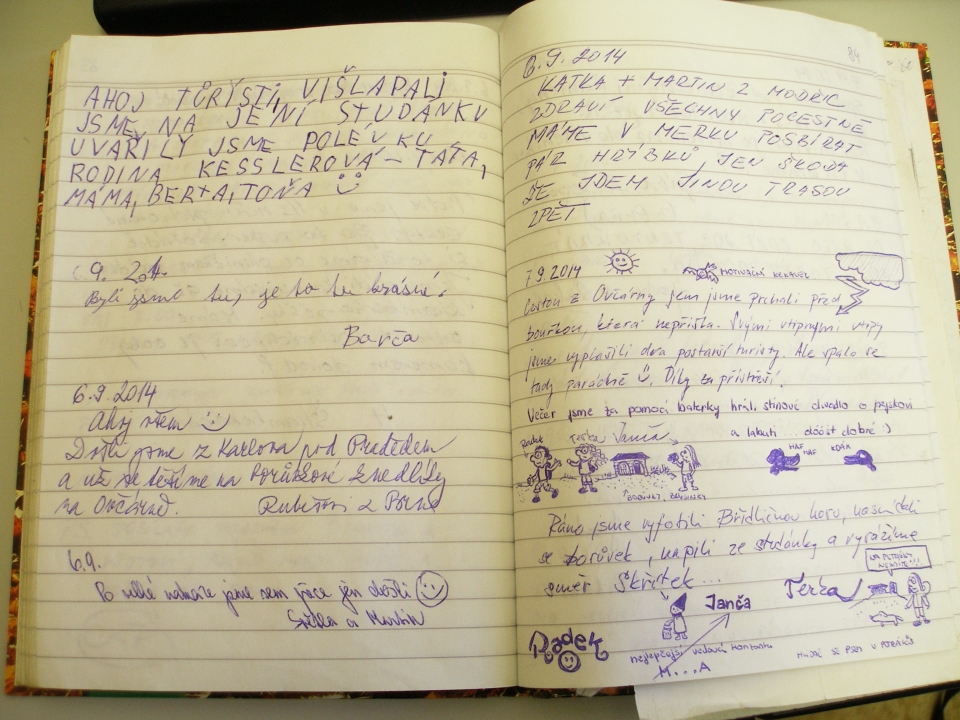 AHOJ TŮRÍSTI, VIŠLAPALI
JSME NA JEJNÍ STUDÁNKU
UVAŘILY JSME POLÉVKU
RODINA KESSLEROVÁ – TÁTA,
MÁMA, BERTA, TOŇA
6.9. 2014
Byli jsme tu, je to tu krásné.
Barča
6.9.2014
Ahoj všem
Došli jsme z Karlova pod Pradědem
a už se těšíme na borůvkové knedlíky
na Ovčárně.
6.9.
Po velké námaze jsme sem přece jen došli
a Martin
84
6.9.2014
KATKA + MARTIN Z MODŘIC
ZDRAVÍ VŠECHNY POCESTNÉ
MÁME V MERKU POSBÍRAT
PÁR HŘÍBKŮ, JEN ŠKODA
ŽE JDEM JINOU TRASOU
ZPĚT
7.9.2014
MOTIVAČNÍ
Cestou z Ovčárny jsme prchali před
bouřkou, která nepřišla. Svými vtipnými vtipy
jsme vyplašili dva postarší turisty. Ale spalo se
tady parádně. Díky za přístřeší.
Večer jsme za pomocí baterky hráli stínové divadlo o pejskovi
a labuti ... dóóst dobré :)
Radek Terka Janča
HAF HAF
Ráno jsme vyfotili Břidličnou horu, nasnídali
se borůvek, napili ze studánky a vyrážíme
směr Skřítek...
Radek
Janča
Terka
nejlepčejší vedoucí
M...A